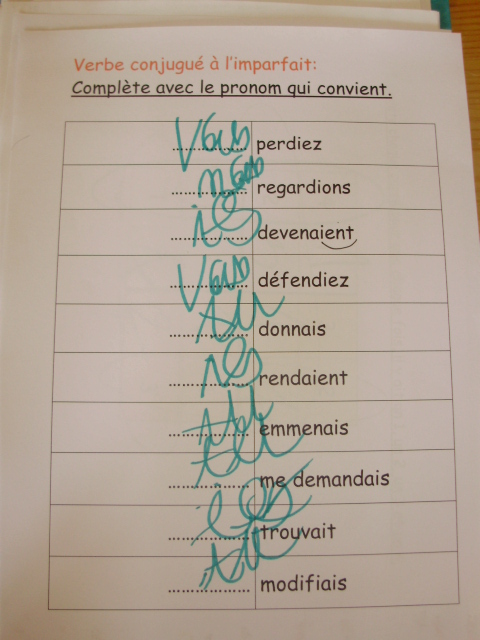 Verbe conjugué à l'imparfait:
Complète avec le pronom qui convient.
vous perdiez
nous regardions
ils devenaient
vous défendiez
tu donnais
ils rendaient
tu emmenais
me demandais
trouvait
tu modifiais